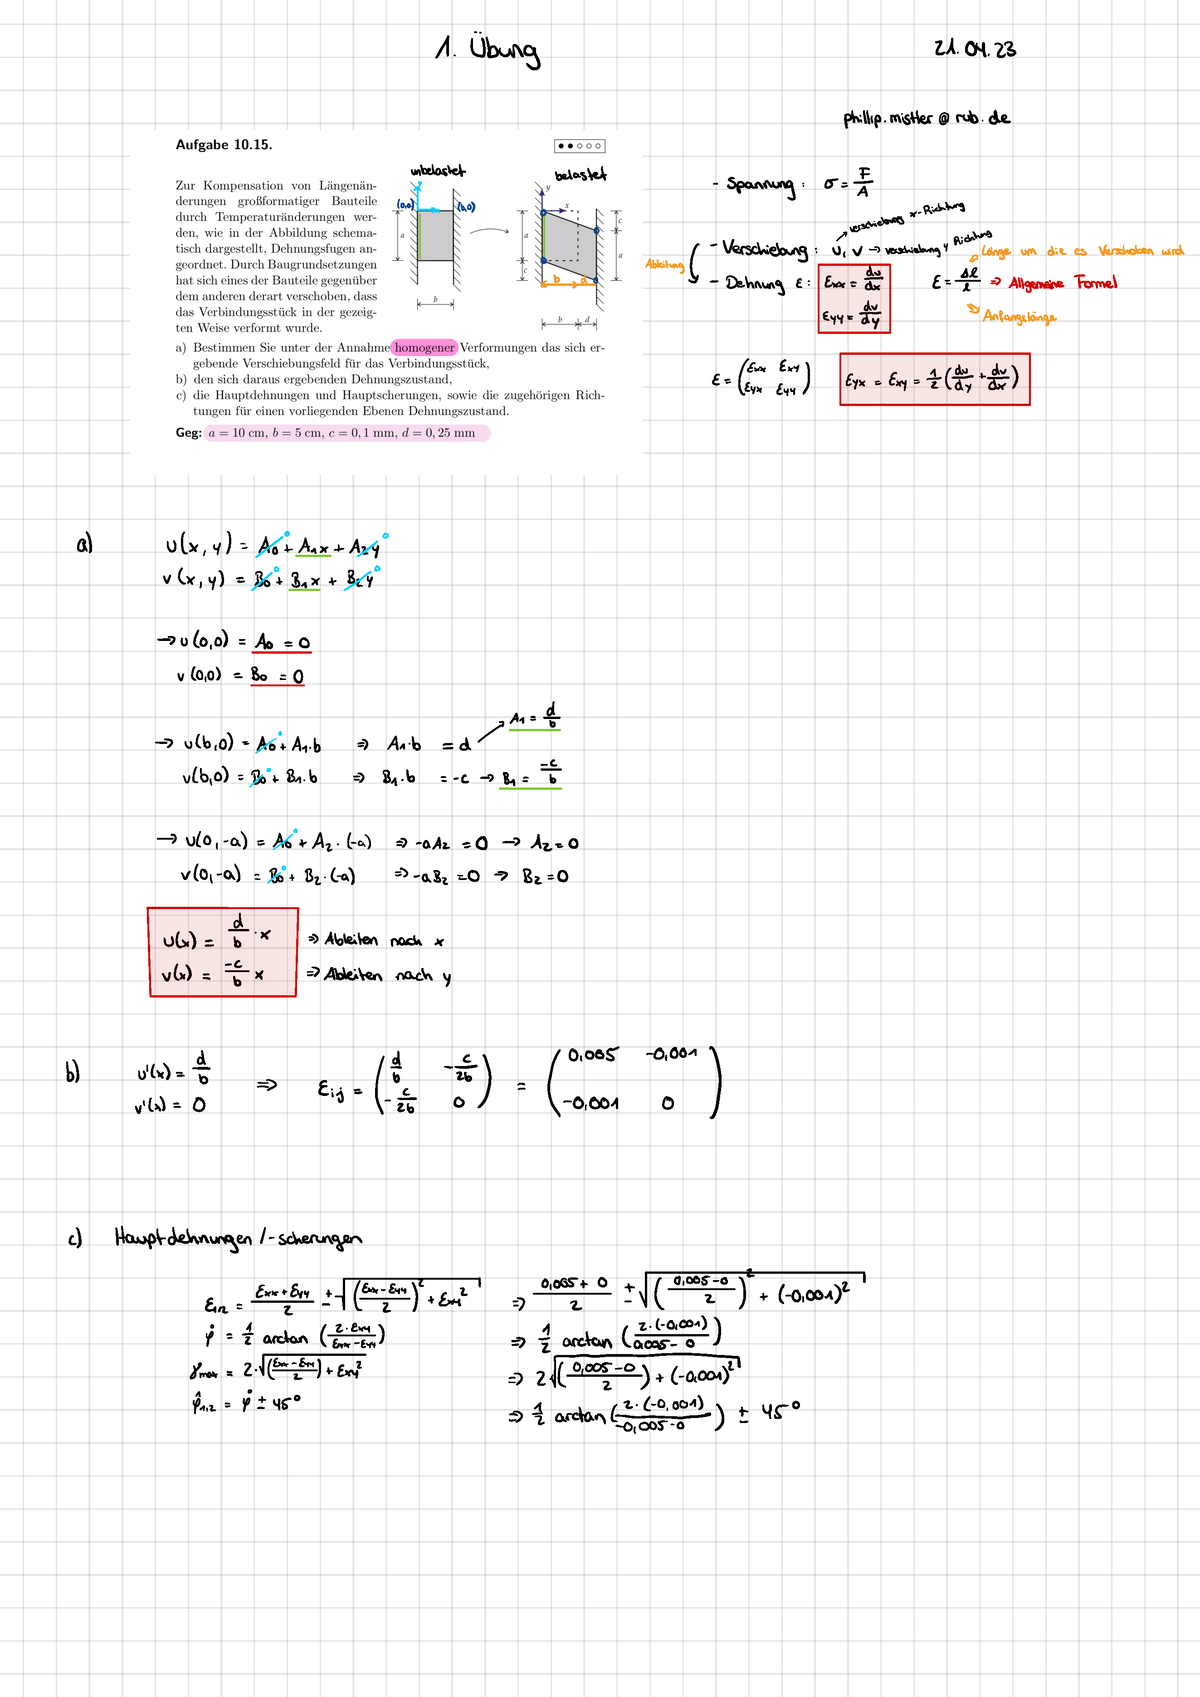 1. Übung
21.04.23
phillip.mistler @ rub.de
Aufgabe 10.15.
unbelastet
belastet
Zur Kompensation von Längenän-
derungen großformatiger Bauteile
durch Temperaturänderungen wer-
den, wie in der Abbildung schema-
tisch dargestellt, Dehnungsfugen an-
geordnet. Durch Baugrundsetzungen
hat sich eines der Bauteile gegenüber
dem anderen derart verschoben, dass
das Verbindungsstück in der gezeig-
ten Weise verformt wurde.
(0,0) (b,0)
a
b
y
x
a
c
c
a
b d
b d
a) Bestimmen Sie unter der Annahme homogener Verformungen das sich er-
gebende Verschiebungsfeld für das Verbindungsstück,
b) den sich daraus ergebenden Dehnungszustand,
c) die Hauptdehnungen und Hauptscherungen, sowie die zugehörigen Rich-
tungen für einen vorliegenden Ebenen Dehnungszustand.
Geg: a = 10 cm, b = 5 cm, c = 0, 1 mm, d = 0, 25 mm
- Spannung : σ = F/A
→ verschiebung x-Richtung
- Verschiebung : u, v → verschiebung y Richtung
Länge um die es Verschoben wird
Ableitung
- Dehnung ε : εxx = du/dx
εyy = dv/dy
ε = Δl/l ⇒ Allgemeine Formel
Anfangslänge
ε = (εxx εxy
εyx εyy)
εyx = εxy = 1/2 (du/dy + dv/dx)
a)
u(x,y) = A0 + A1x + A2y
v(x,y) = B0 + B1x + B2y
→ u(0,0) = A0 = 0
v(0,0) = B0 = 0
A1 = d/b
→ u(b,0) = A0 + A1·b ⇒ A1·b = d
v(b,0) = B0 + B1·b ⇒ B1·b = -c → B1 = -c/b
→ u(0,-a) = A0 + A2·(-a) ⇒ -aA2 = 0 → A2 = 0
v(0,-a) = B0 + B2·(-a) ⇒ -aB2 = 0 → B2 = 0
u(x) = d/b · x ⇒ Ableiten nach x
v(x) = -c/b x ⇒ Ableiten nach y
b)
u'(x) = d/b
v'(x) = 0
⇒ εij = (d/b -c/2b
-c/2b 0) = (0,005 -0,001
-0,001 0)
c) Hauptdehnungen /-scherungen
ε1/2 = (εxx + εyy)/2 ± √(((εxx - εyy)/2)² + εxy²) ⇒ (0,005 + 0)/2 ± √(((0,005 - 0)/2)² + (-0,001)²)
φ̇ = 1/2 arctan (2·εxy/(εxx - εyy)) ⇒ 1/2 arctan (2·(-0,001)/(0,005 - 0))
γmax = 2·√(((εxx - εyy)/2) + εxy²) ⇒ 2√(((0,005 - 0)/2) + (-0,001)²)
φ̂1,2 = φ̇ ± 45° ⇒ 1/2 arctan (2·(-0,001)/(-0,005 - 0)) ± 45°